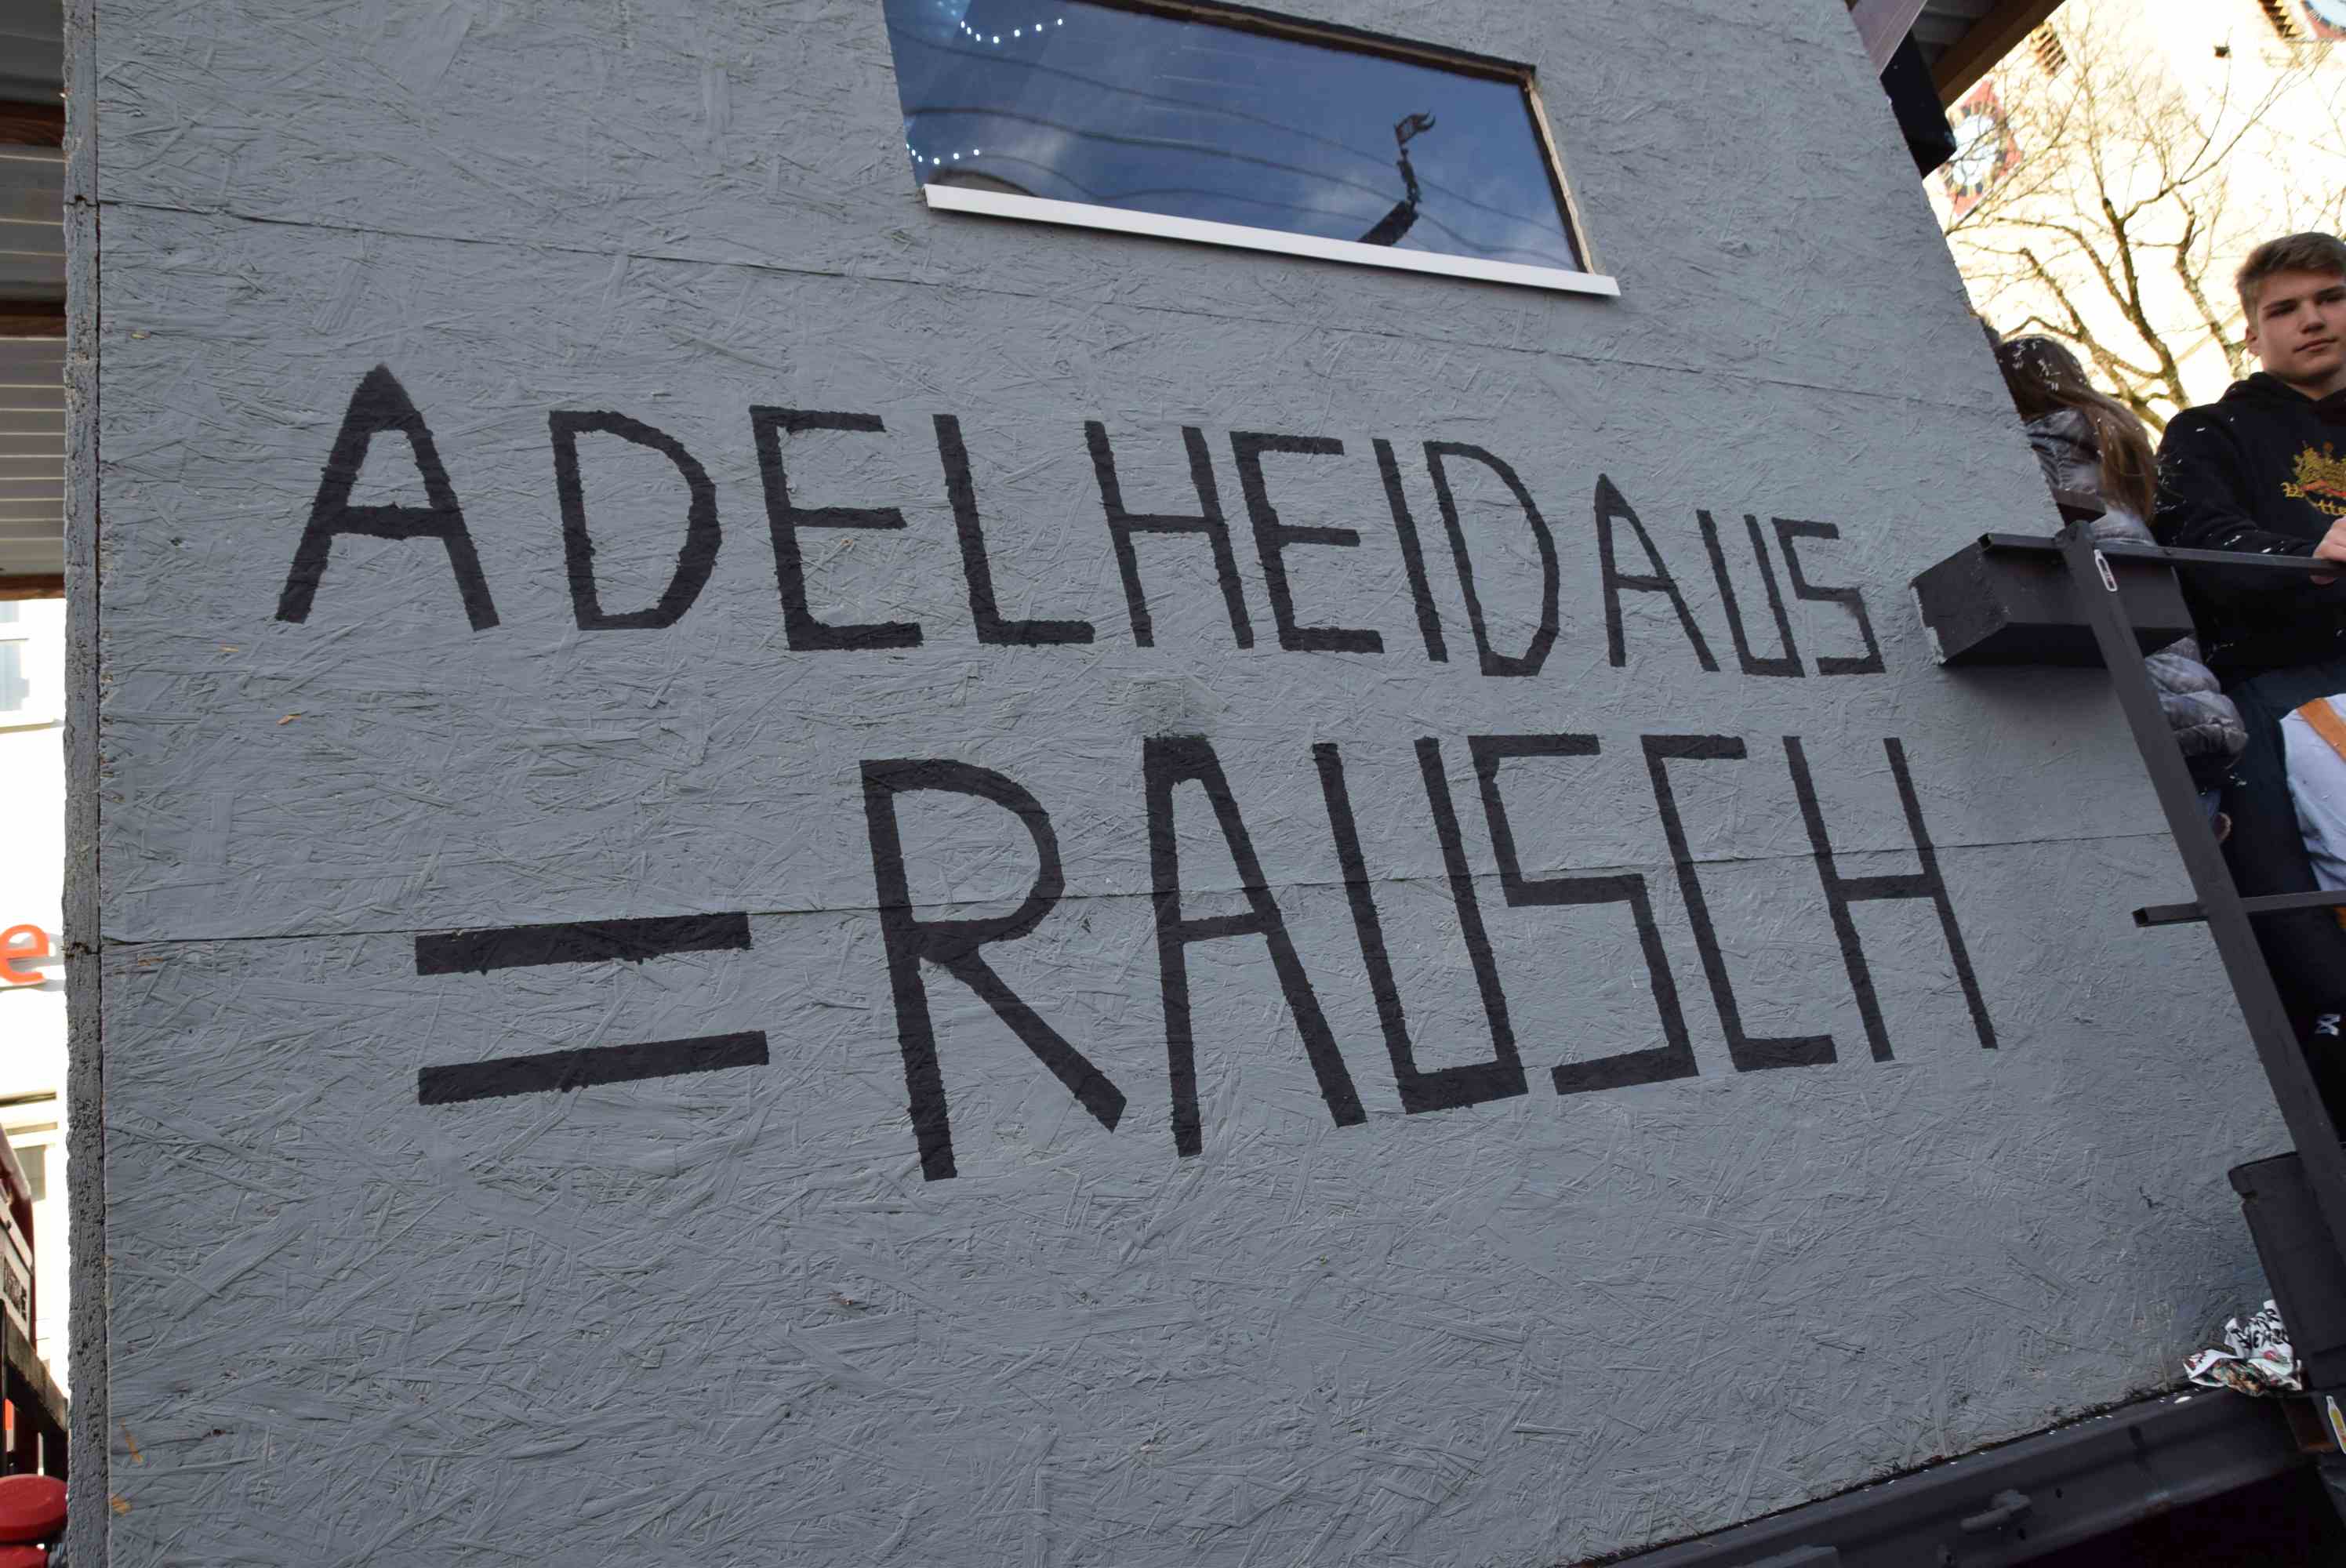 ADELHEIDAUS
= RAUSCH
e